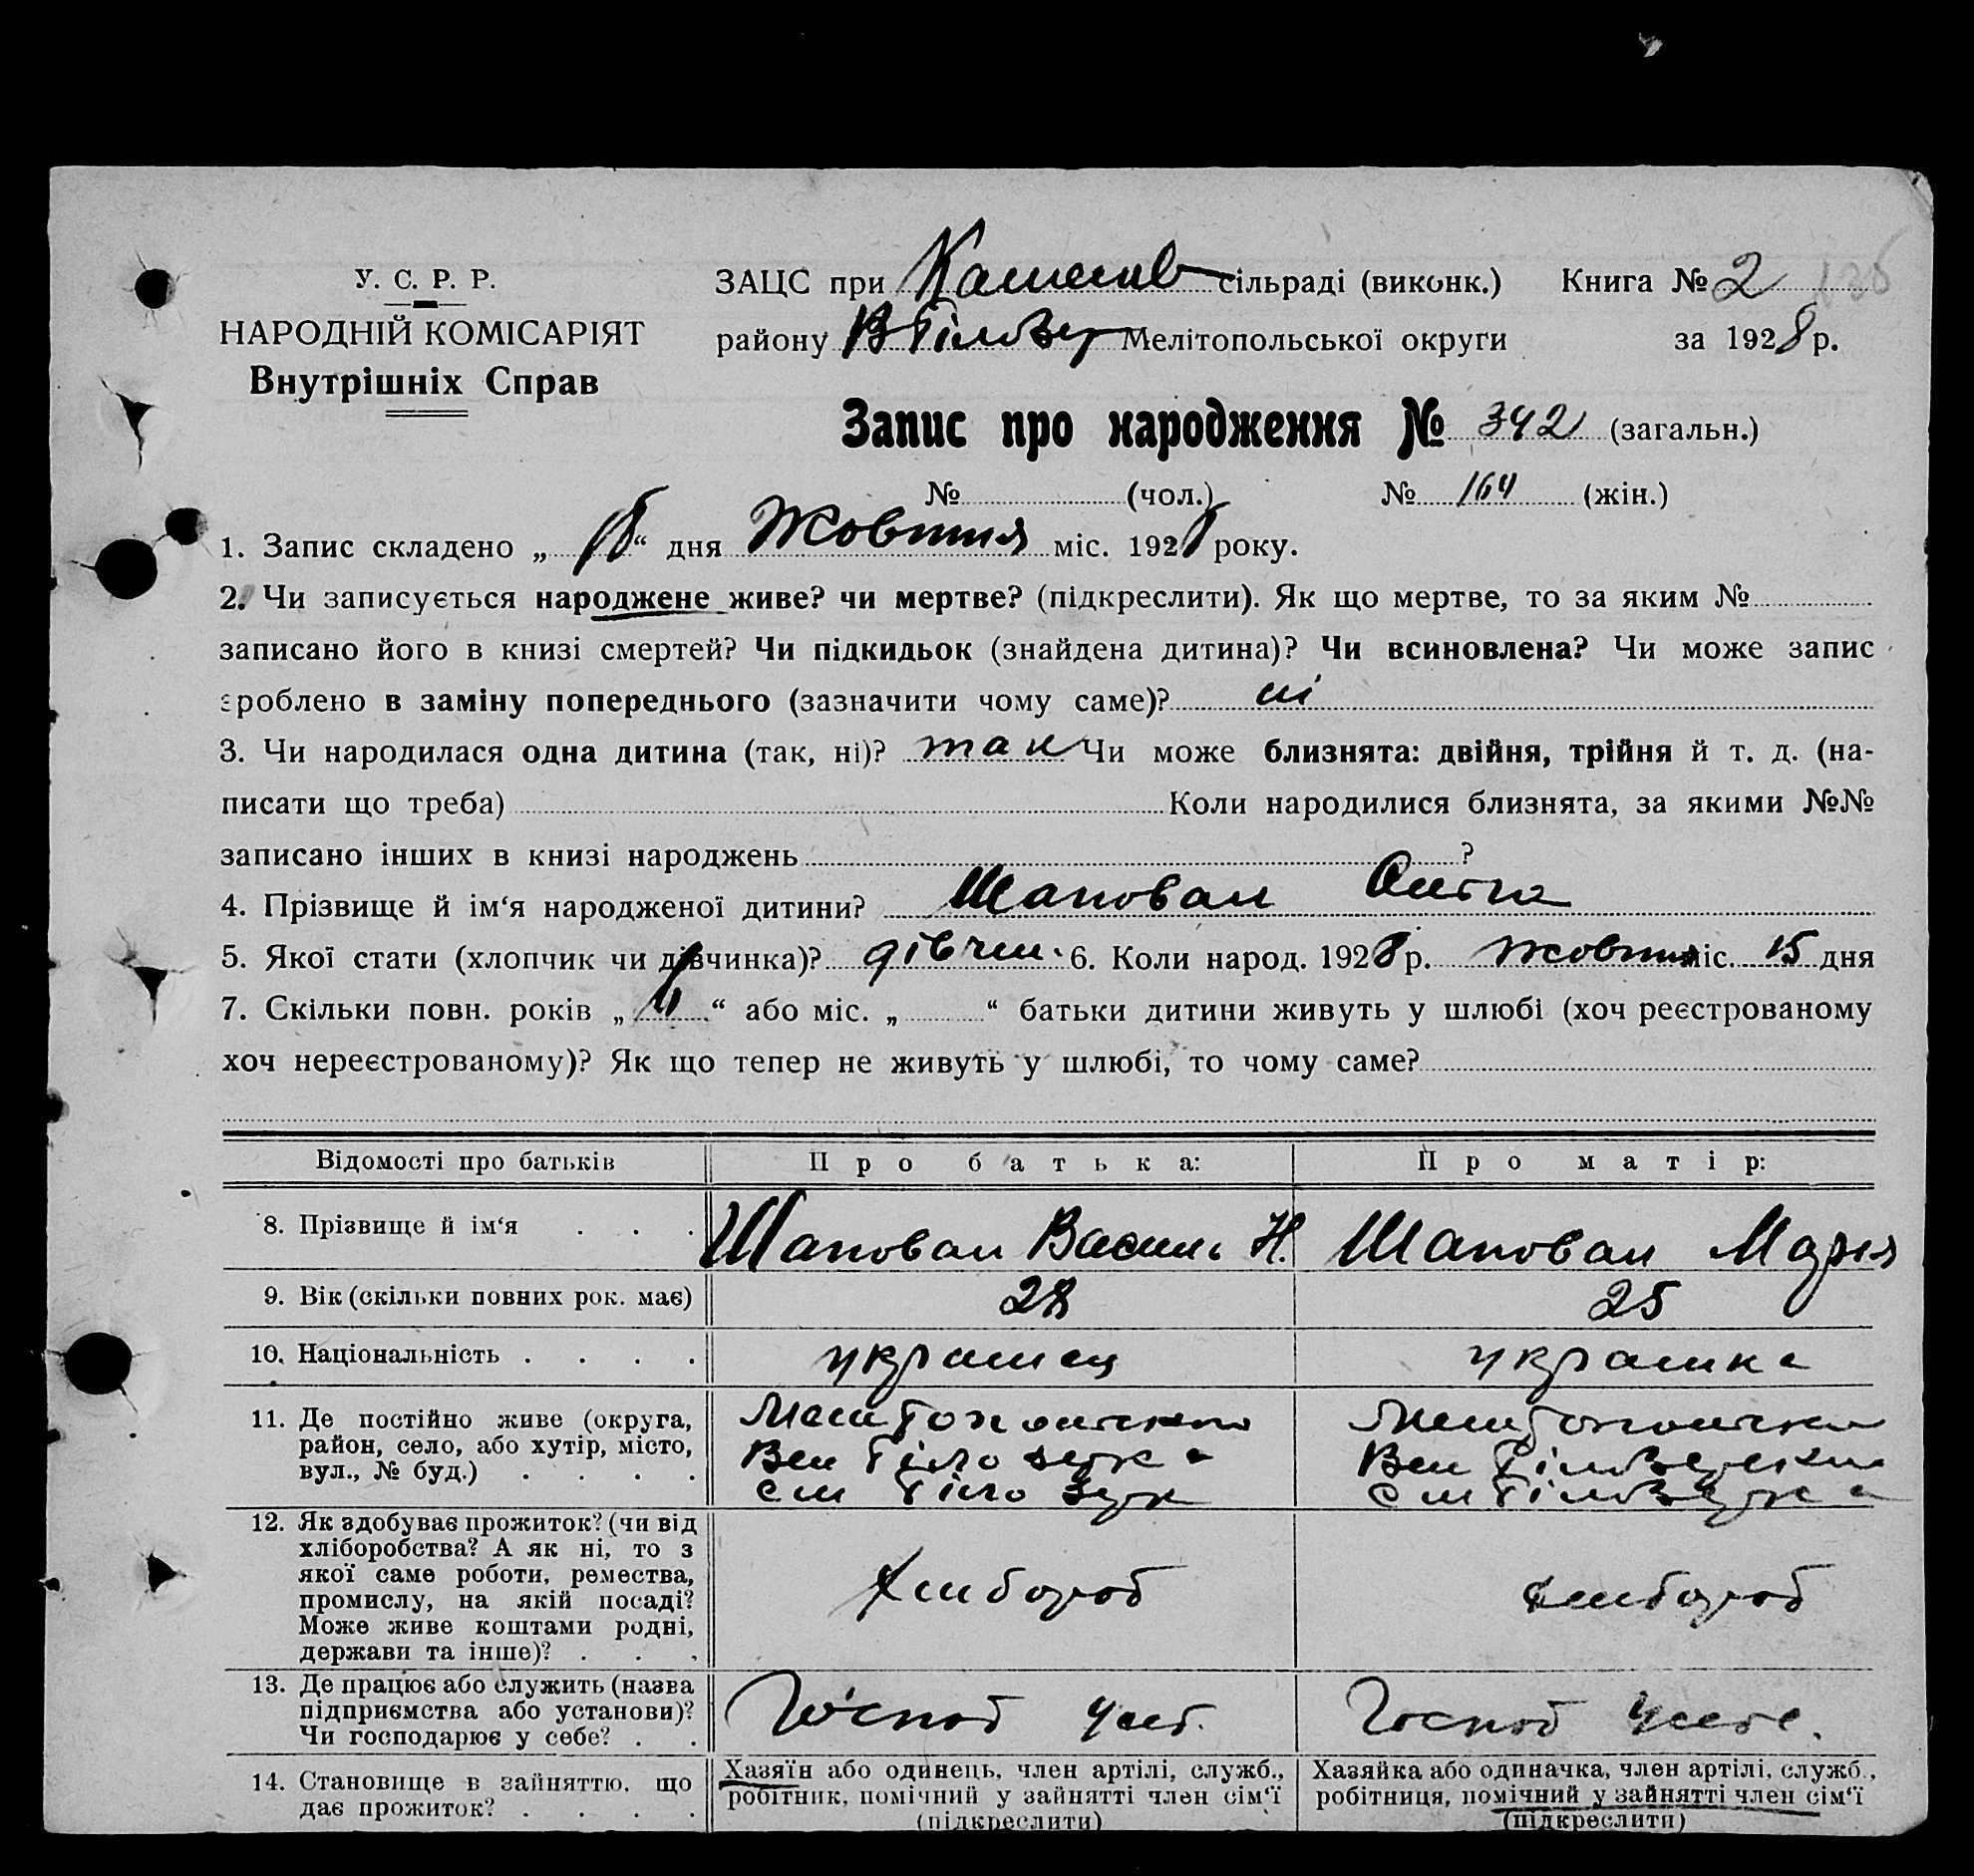 У. С. Р. Р.
НАРОДНІЙ КОМІСАРІЯТ
Внутрішніх Справ
ЗАЦС при сільраді (виконк.) Книга № 2
району Мелітопольської округи за 1928 р.
Запис про народження № 342 (загальн.)
№ (чол.) № 164 (жін.)
1. Запис складено „ “ дня Жовтня міс. 1928 року.
2. Чи записується народжене живе? чи мертве? (підкреслити). Як що мертве, то за яким №
записано його в книзі смертей? Чи підкидьок (знайдена дитина)? Чи всиновлена? Чи може запис
зроблено в заміну попереднього (зазначити чому саме)? ні
3. Чи народилася одна дитина (так, ні)? так Чи може близнята: двійня, трійня й т. д. (на-
писати що треба) Коли народилися близнята, за якими №№
записано інших в книзі народжень ?
4. Прізвище й ім‘я народженої дитини? Шаповал
5. Якої стати (хлопчик чи дівчинка)? дівчин. 6. Коли народ. 1928 р. Жовтня міс. 15 дня
7. Скільки повн. років „ “ або міс. „ “ батьки дитини живуть у шлюбі (хоч реєстрованому
хоч нереєстрованому)? Як що тепер не живуть у шлюбі, то чому саме?
Відомості про батьків Про батька: Про матір:
8. Прізвище й ім‘я . . . Шаповал Василь Н. Шаповал Марія
9. Вік (скільки повних рок. має) 28 25
10. Національність . . . . українец українка
11. Де постійно живе (округа,
район, село, або хутір, місто,
вул., № буд.) . . . .
12. Як здобуває прожиток? (чи від
хліборобства? А як ні, то з
якої саме роботи, ремества,
промислу, на якій посаді?
Може живе коштами родні,
держави та інше)? . . .
хлібороб хлібороб
13. Де працює або служить (назва
підприємства або установи)?
Чи господарює у себе? . .
Господ у себе.
14. Становище в зайняттю, що
дає прожиток? . . . .
Хазяїн або одинець, член артілі, служб.,
робітник, помічний у зайнятті член сім‘ї
(підкреслити)
Хазяйка або одиначка, член артілі, служб.,
робітниця, помічний у зайнятті член сім‘ї
(підкреслити)